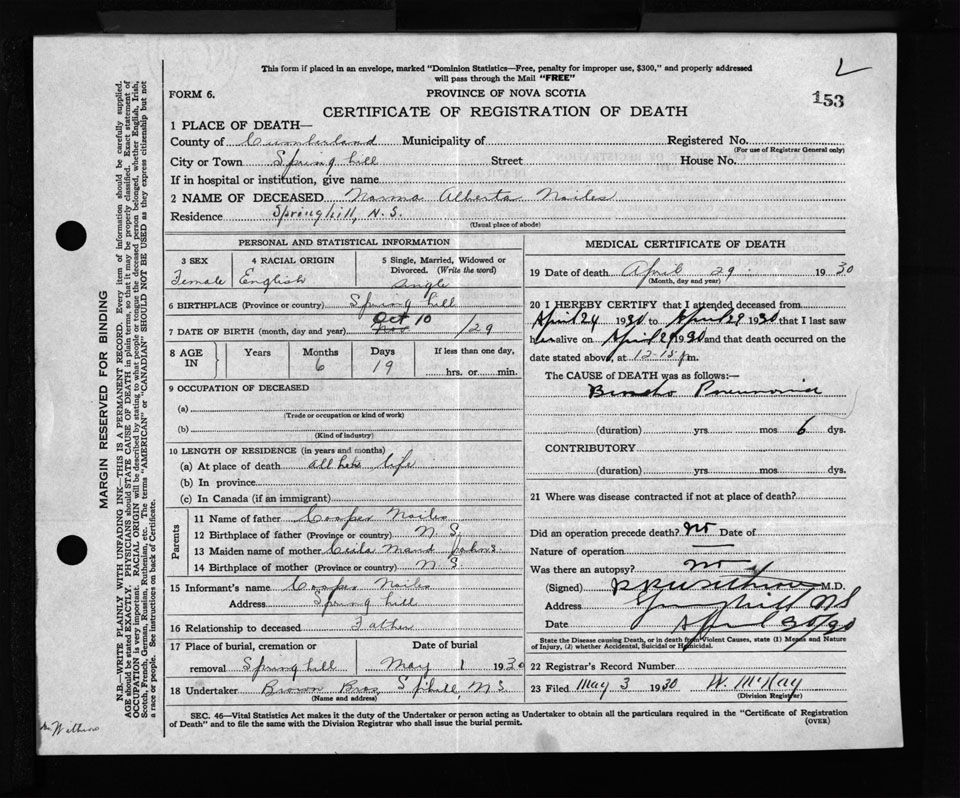 This form if placed in an envelope, marked "Dominion Statistics—Free, penalty for improper use, $300," and properly addressed
will pass through the Mail "FREE"
153
FORM 6. PROVINCE OF NOVA SCOTIA
CERTIFICATE OF REGISTRATION OF DEATH
1 PLACE OF DEATH—
County of Cumberland Municipality of Registered No.
(For use of Registrar General only)
City or Town Spring hill Street House No.
If in hospital or institution, give name
2 NAME OF DECEASED Norma Alberta Noiles
Residence Springhill, N.S.
(Usual place of abode)
PERSONAL AND STATISTICAL INFORMATION
3 SEX 4 RACIAL ORIGIN 5 Single, Married, Widowed or
Divorced. (Write the word)
Female English
6 BIRTHPLACE (Province or country) Spring hill
7 DATE OF BIRTH (month, day and year) Oct 10 Nov /29
8 AGE IN Years Months Days If less than one day,
6 19 hrs. or min.
9 OCCUPATION OF DECEASED
(a)
(Trade or occupation or kind of work)
(b)
(Kind of industry)
10 LENGTH OF RESIDENCE (in years and months)
(a) At place of death all her life
(b) In province
(c) In Canada (if an immigrant)
Parents
11 Name of father Cooper Noiles
12 Birthplace of father (Province or country) N.S.
13 Maiden name of mother Maud
14 Birthplace of mother (Province or country) N.S.
15 Informant's name Cooper Noiles
Address Spring hill
16 Relationship to deceased Father
17 Place of burial, cremation or Date of burial
removal Spring hill May 1 1930
18 Undertaker Brown Bros, S'phill, N.S.
(Name and address)
MEDICAL CERTIFICATE OF DEATH
19 Date of death April 29 1930
(Month, day and year)
20 I HEREBY CERTIFY that I attended deceased from
April 24 1930 to April 29 1930 that I last saw
her alive on April 29 1930 and that death occurred on the
date stated above, at 12-15 p.m.
The CAUSE of DEATH was as follows:—
Broncho Pneumonia
(duration) yrs. mos 6 dys.
CONTRIBUTORY
(duration) yrs. mos. dys.
21 Where was disease contracted if not at place of death?
Did an operation precede death? No Date of
Nature of operation
Was there an autopsy? No
(Signed) M.D.
Address Springhill NS
Date April 30/30
State the Disease causing Death, or in death from Violent Causes, state (1) Means and Nature
of Injury, (2) whether Accidental, Suicidal or Homicidal.
22 Registrar's Record Number
23 Filed May 3 1930 W. McKay
(Division Registrar)
SEC. 46—Vital Statistics Act makes it the duty of the Undertaker or person acting as Undertaker to obtain all the particulars required in the "Certificate of Registration
of Death" and to file the same with the Division Registrar who shall issue the burial permit. (OVER)
MARGIN RESERVED FOR BINDING
N.B.—WRITE PLAINLY WITH UNFADING INK—THIS IS A PERMANENT RECORD. Every item of information should be carefully supplied.
AGE should be stated EXACTLY. PHYSICIANS should STATE CAUSE OF DEATH in plain terms, so that it may be properly classified. Exact statement of
OCCUPATION is very important. RACIAL ORIGIN will be described by stating to what people or tongue the deceased person belonged, whether English, Irish,
Scotch, French, German, Russian, Ruthenian, etc. The terms "AMERICAN" or "CANADIAN" SHOULD NOT BE USED as they express citizenship but not
a race or people. See instructions on back of Certificate.